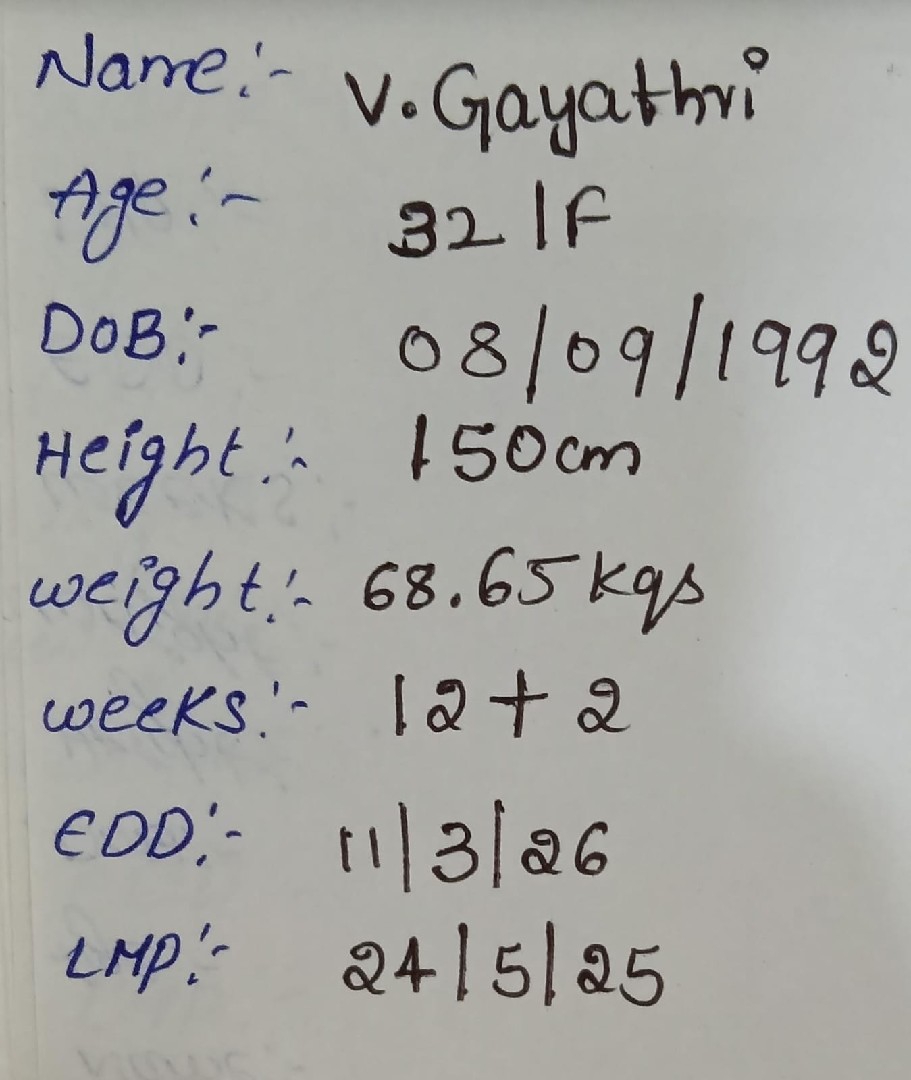 Name:- V. Gayathri
Age:- 32/F
DOB:- 08/09/1992
Height:- 150cm
weight:- 68.65 kgs
weeks:- 12+2
EDD:- 11/3/26
LMP:- 24/5/25